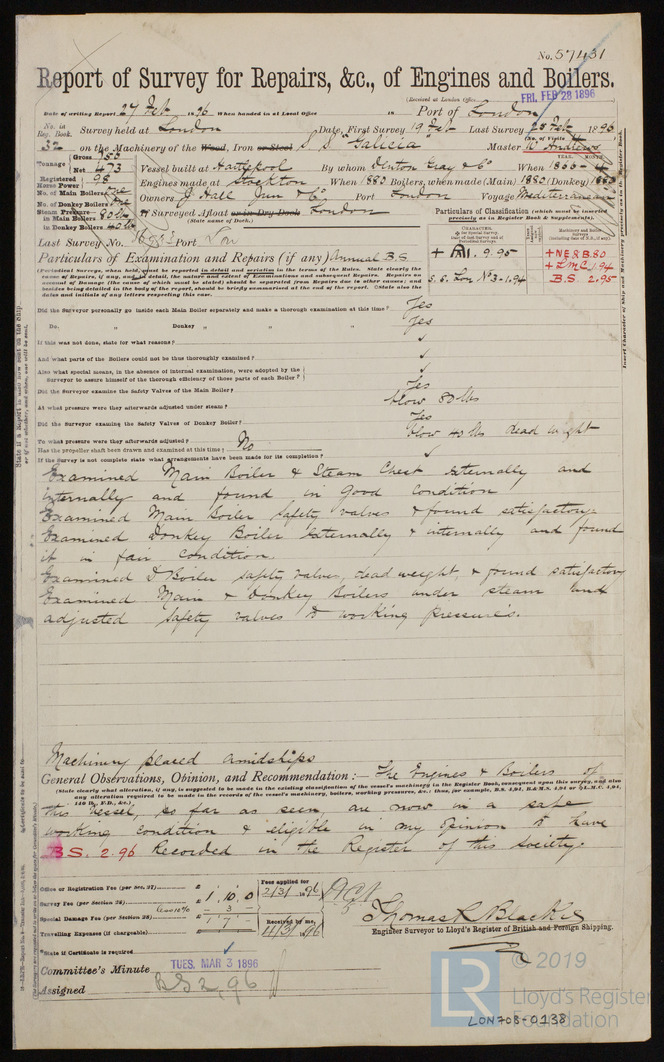 No. 57431
Report of Survey for Repairs, &c., of Engines and Boilers.
(Received at London Office
FRI. FEB 28 1896
Date of writing Report 27 Feb 1896 When handed in at Local Office 18 Port of London
No. in Reg. Book. Survey held at London Date, First Survey 19 Feb Last Survey 25 Feb 1896
(No. of Visits
32 on the Machinery of the Wood, Iron or Steel S S "Galicia" Master W Andrews
Tonnage Gross 750
Net 473
Vessel built at Hartlepool By whom Denton Gray & Co When
YEAR. MONTH.
Registered Horse Power 98
Engines made at Stockton When 1880 Boilers, when made (Main) 1880 (Donkey)
No. of Main Boilers One
Owners J Hall Jun & Co Port London Voyage Mediterranean
No. of Donkey Boilers One
Steam Pressure in Main Boilers 80 lbs
in Donkey Boilers 40 lbs
If Surveyed Afloat or in Dry Dock London
(State name of Dock.)
Particulars of Classification (which must be inserted precisely as in Register Book & Supplements).
Last Survey No. Port Lon
Particulars of Examination and Repairs (if any) Annual B.S.
+ A1. 9.95
S.S. Lon No 3-1.94
+ N.E & B.80
+ L.M.C. 1.94
B.S. 2.95
(Periodical Surveys, when held, must be reported in detail and seriatim in the terms of the Rules. State clearly the
Did the Surveyor personally go inside each Main Boiler separately and make a thorough examination at this time? Yes
Do. " Donkey " " " Yes
If this was not done, state for what reasons?
And what parts of the Boilers could not be thus thoroughly examined?
Also what special means, in the absence of internal examination, were adopted by the
Surveyor to assure himself of the thorough efficiency of those parts of each Boiler?
Did the Surveyor examine the Safety Valves of the Main Boiler? Yes
At what pressure were they afterwards adjusted under steam? blow 80 lbs
Did the Surveyor examine the Safety Valves of Donkey Boiler? Yes
To what pressure were they afterwards adjusted? blow 40 lbs dead weight
Has the propeller shaft been drawn and examined at this time? No
If the Survey is not complete state what arrangements have been made for its completion?
Examined Main Boiler & Steam Chest externally and
internally and found in good condition
Examined Main Boiler safety valves & found satisfactory
Examined Donkey Boiler externally & internally and found
it in fair condition.
Examined D Boiler safety valves, dead weight, & found satisfactory
Examined Main & Donkey Boilers under steam and
adjusted safety valves to working pressure's.
Machinery placed amidships
General Observations, Opinion, and Recommendation:— The Engines & Boilers of
(State clearly what alteration, if any, is suggested to be made in the existing classification of the vessel's machinery in the Register Book, consequent upon this survey, and also
any alteration required to be made in the records of the vessel's machinery, boilers, working pressures, &c.: thus, for example, B.S. 4,94, B.&M.S. 4,94 or L.M.C. 4,94,
140 lb., F.D., &c.)
this vessel, so far as seen are now in a safe
working condition & eligible in my opinion to have
B.S. 2.96 Recorded in the Register of this Society.
Office or Registration Fee (per Sec. 27) £
Survey Fee (per Section 28) £ 1. 10. 0
Less 10% 3
Special Damage Fee (per Section 28) £ 1. 7
Travelling Expenses (if chargeable) £
Fees applied for
2/3/1896
Received by me,
11/3/1896
Thomas R Blackie
Engineer Surveyor to Lloyd's Register of British and Foreign Shipping.
*State if Certificate is required
Committee's Minute TUES. MAR 3 1896
Assigned B.S 2,96
© 2019
LR
Lloyd's Register
Foundation
LON708-0138